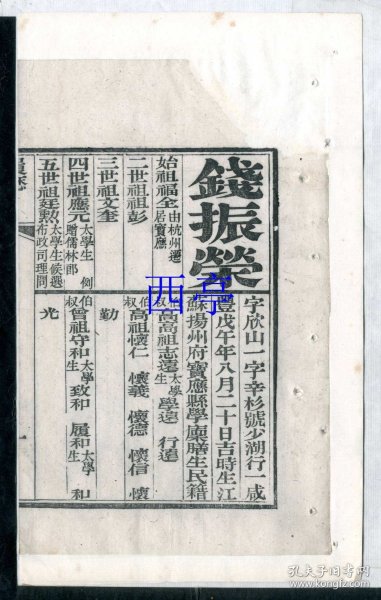 錢振榮
字欣山一字幸杉號少湖行一咸
豐戊午年八月二十日吉時生江
蘇揚州府寶應縣學廩膳生民籍
始祖福全由杭州遷居寶應
二世祖彭
三世祖文奎
四世祖應元太學生例贈儒林郎
五世祖廷勲太學生候選布政司理問
伯叔高高祖志遠太學生 學遠 行遠
伯叔高祖懷仁 懷義 懷德 懷信 懷
勤
伯叔曾祖守和太學生 致和 履和太學生 和
光
西亭
孔夫子旧书网